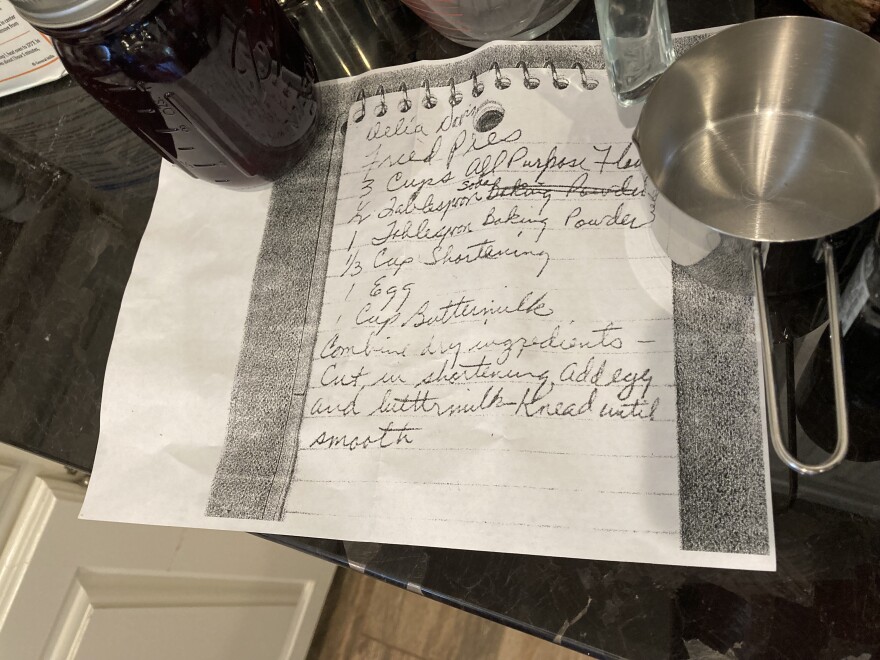 Delia
Fried Pies
3 Cups All Purpose Flou
Tablespoon soda Baking Powder
1 Tablespoon Baking Powder
1/3 Cup Shortening
1 Egg
1 Cup Buttermilk
Combine dry ingredients -
Cut in shortening, Add egg
and buttermilk - Knead until
smooth